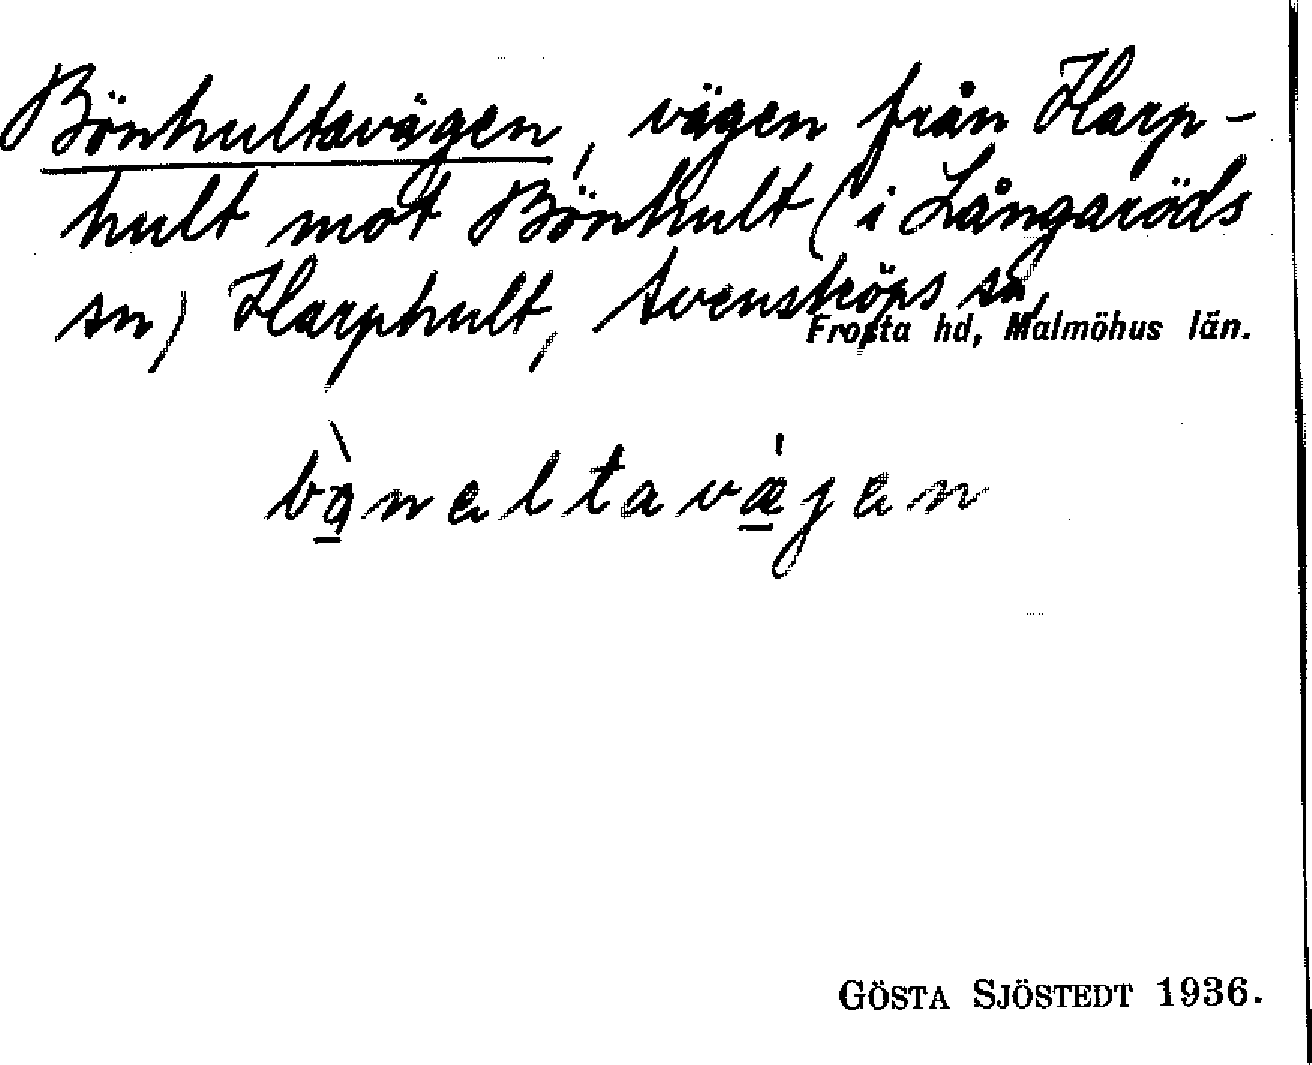 Bönhultavägen, vägen från Harp-
hult mot Bönhult (i Långaröds
sn) Harphult, Svensköps sn,
Frosta hd, Malmöhus län.
bǫ̀nəltavǽ̱jən
GÖSTA SJÖSTEDT 1936.